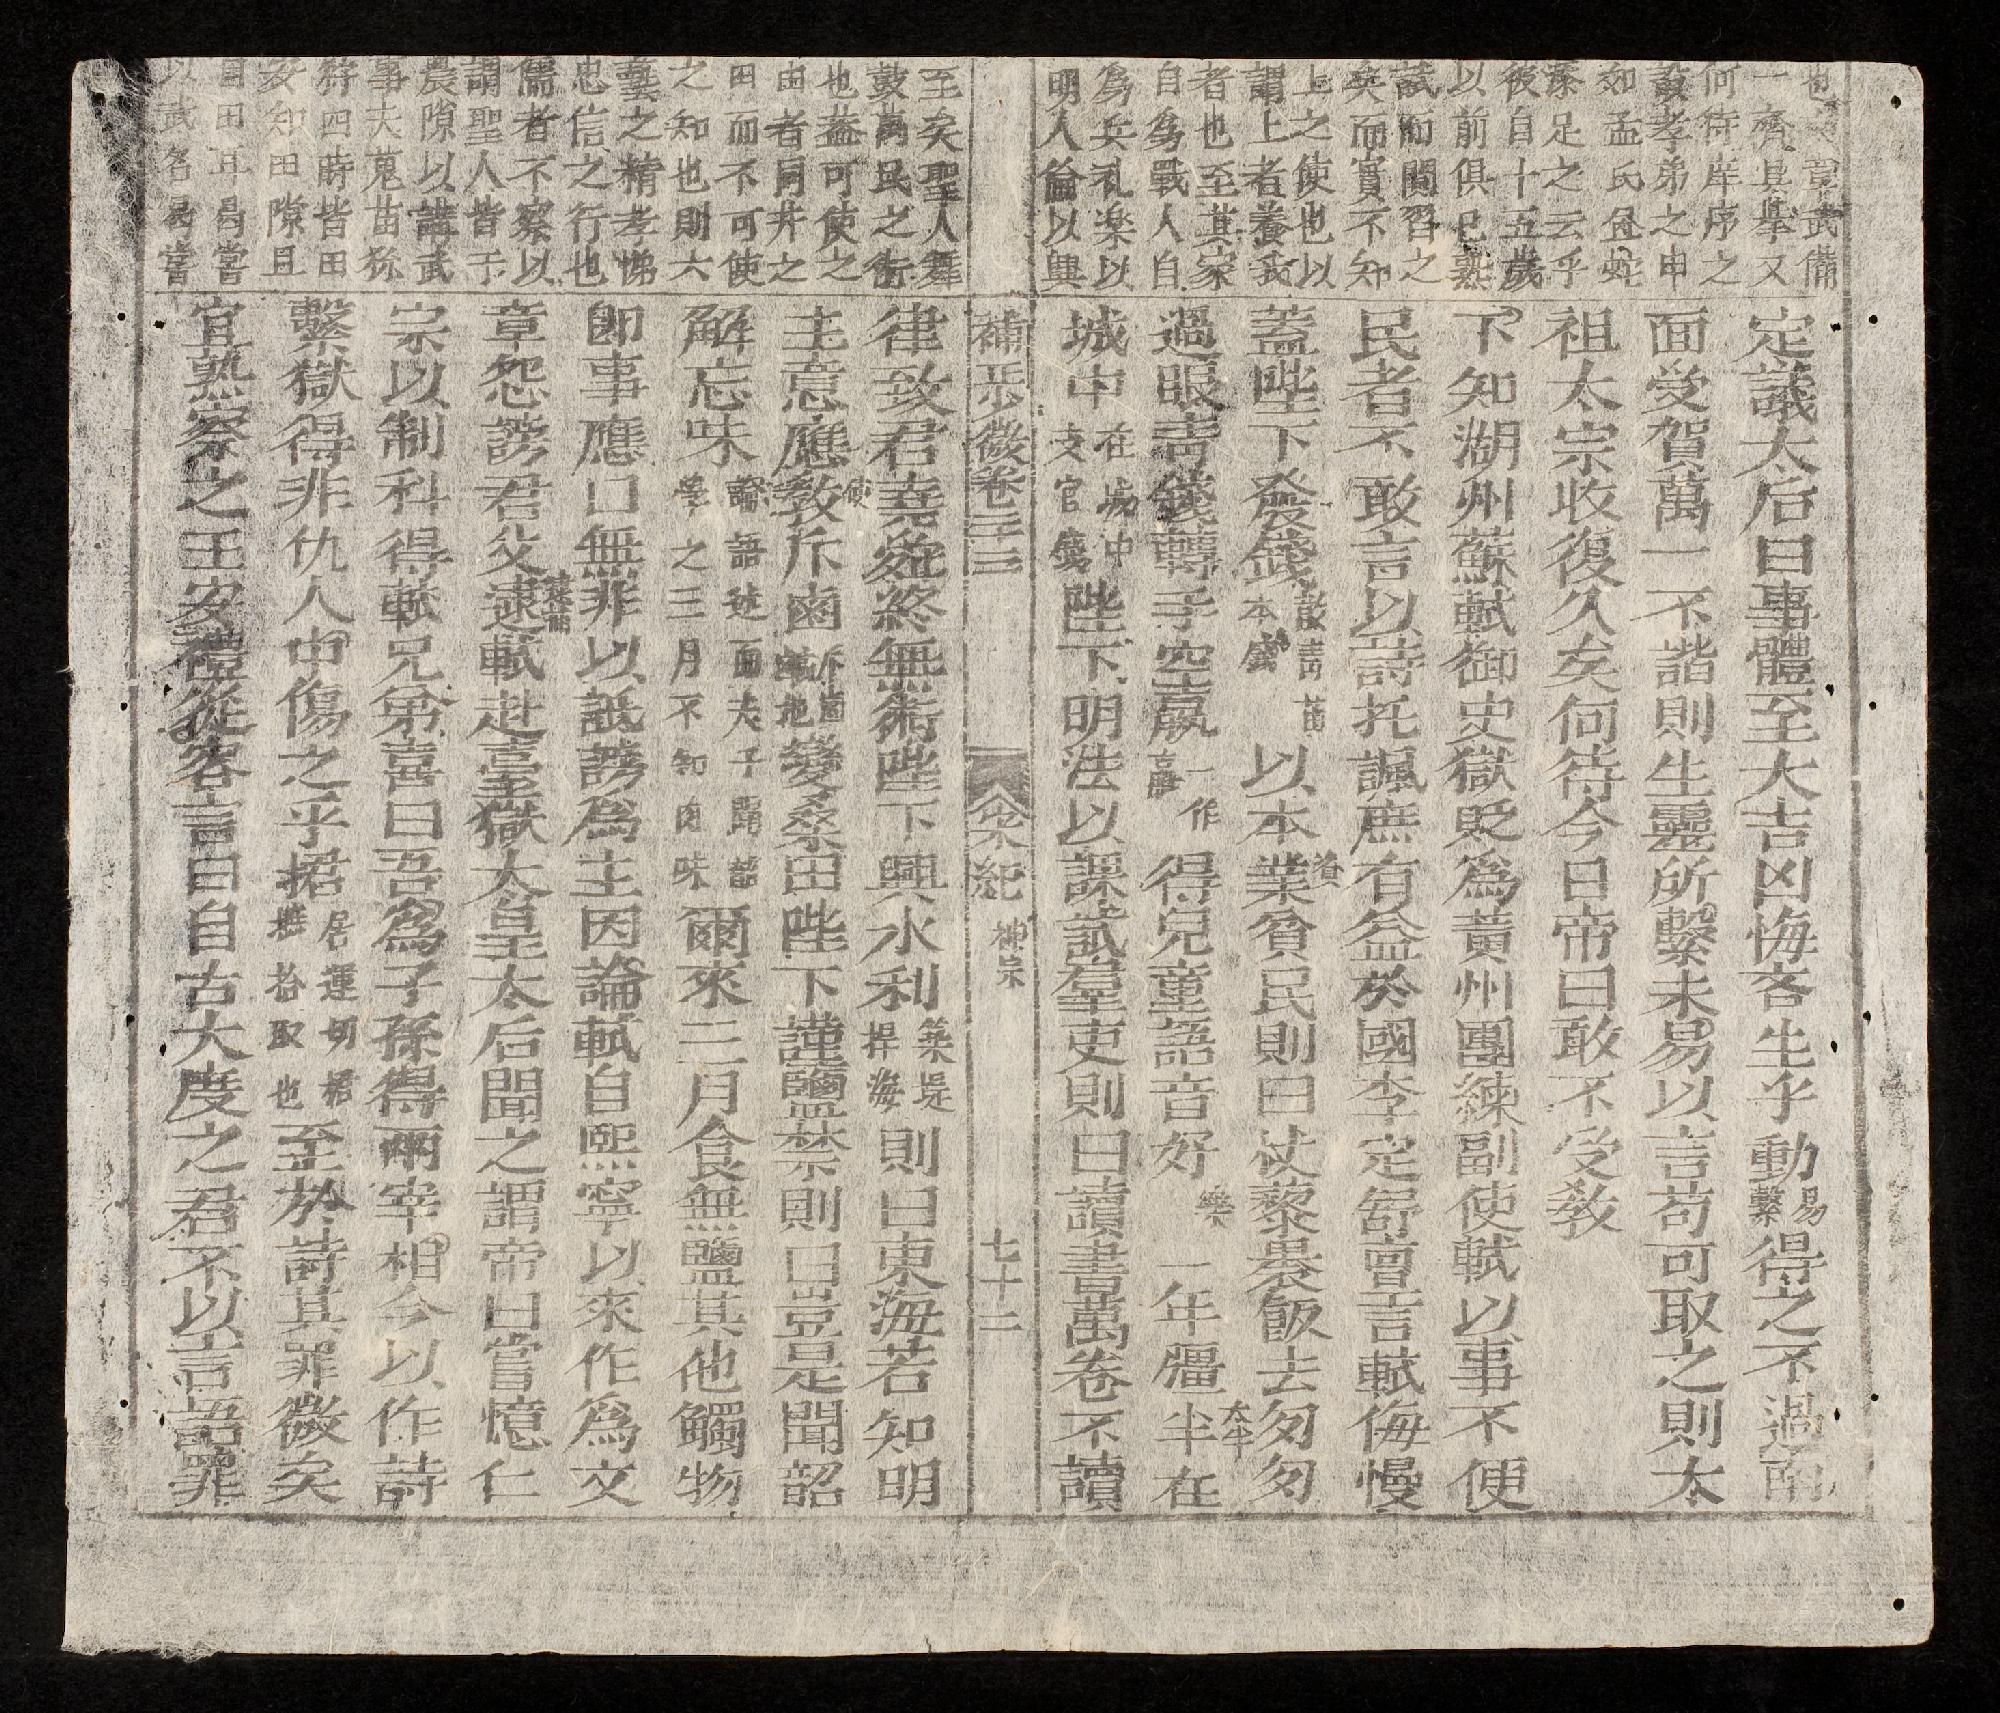 定議太后曰事體至大吉凶悔吝生乎動易繫得之不過南
面受賀萬一不諧則生靈所繫未易以言苟可取之則太
祖太宗收復久矣何待今日帝曰敢不受敎
下知湖州蘇軾御史獄貶爲黃州團練副使軾以事不便
民者不敢言以詩托諷庶有益於國李定舒亶言軾侮慢
蓋陛下發錢散靑苗本錢以本業貧民則曰杖藜裹飯去匆匆
過眼靑錢轉手空贏一作得兒童語音好一年彊半在
城中在城中支官錢陛下明法以課試羣吏則曰讀書萬卷不讀
律致君堯舜終無術陛下興水利築堤捍海則曰東海若知明
主意應敎斥鹵變桑田陛下謹鹽禁則曰豈是聞韶
解忘味論語述而夫子聞韶學之三月不知肉味爾來三月食無鹽其他觸物
卽事應口無非以詆謗爲主因論軾自熙寧以來作爲文
章怨謗君父逮軾赴臺獄太皇太后聞之謂帝曰嘗憶仁
宗以制科得軾兄弟喜曰吾爲子孫得兩宰相今以作詩
繫獄得非仇人中傷之乎捃居運切捃摭拾取也至於詩其罪微矣
宜熟察之王安禮從容言曰自古大度之君不以言語罪
宋紀 神宗
七十二
一齊其擧又
何待庠序之
敎孝弟之申
彼自十五歲
以前俱已熟
試而閱習之
矣而實不知
上之使也以
謂上者養我
者也至其家
自爲戰人自
爲兵礼楽以
明人倫以興
至矣聖人舞
鼓萬民之術
也益可使之
由者同井之
田而不可使
之知也則六
藝之精孝悌
忠信之行也
儒者不察以
謂聖人皆于
農隙以講武
事夫蒐苗狝
狩四時皆田
安知田隙且
曰田耳曷嘗
以武名曷嘗